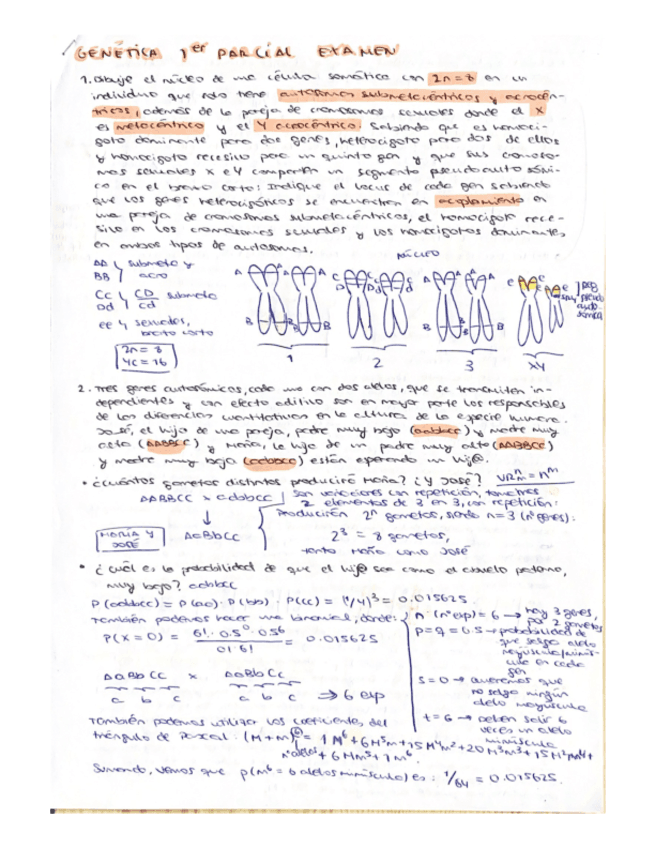 GENÉTICA 1er PARCIAL EXAMEN
1. Dibuje el núcleo de una célula somática con 2n=8 en un
individuo que solo tiene autosomas submetacéntricos y acrocén-
tricos, además de la pareja de cromosomas sexuales donde el X
es metacéntrico y el Y acrocéntrico. Sabiendo que es homoci-
goto dominante para dos genes, heterocigoto para dos de ellos
y homocigoto recesivo para un quinto gen y que sus cromoso-
mas sexuales X e Y comparten un segmento pseudoautosómi-
co en el brazo corto: Indique el locus de cada gen sabiendo
que los genes heterocigóticos se encuentran en acoplamiento en
una pareja de cromosomas submetacéntricos, el homocigoto rece-
sivo en los cromosomas sexuales y los homocigotos dominantes,
en ambos tipos de autosomas.
NÚCLEO
AA submeta y
BB acro
Cc CD submeta
Dd cd
ee y sexuales,
brazo corto
2n = 8
4c = 16
A A A A C C c c A A A A e e e e
D D d d
B B B B B B B
1 2 3 XY
pseudo
autosómica
2. Tres genes autosómicos, cada uno con dos alelos, que se transmiten in-
dependientes y con efecto aditivo son en mayor parte los responsables
de las diferencias cuantitativas en la altura de la especie humana.
José, el hijo de una pareja, padre muy bajo (aabbcc) y madre muy
alta (AABBCC) y María, la hija de un padre muy alto (AABBCC)
y madre muy baja (aabbcc) están esperando un hij@.
• ¿Cuántos gametos distintos producirá María? ¿Y José? VRnm = nm
AABBCC x aabbcc
Son variaciones con repetición, tomamos
2 elementos de 3 en 3, con repetición:
Producirán 2n gametos, siendo n=3 (nº genes):
MARÍA Y JOSÉ
AaBbCc
2³ = 8 gametos,
tanto María como José
• ¿Cuál es la probabilidad de que el hij@ sea como el abuelo paterno,
muy bajo? aabbcc
P(aabbcc) = P(aa) · P(bb) · P(cc) = (1/4)³ = 0.015625.
También podemos hacer una binomial, donde:
P(X=0) = 6! · 0.5⁰ · 0.5⁶ / 0! 6! = 0.015625
n (nº exp) = 6 → hay 3 genes,
por 2 gametos
p=q=0.5 → probabilidad de
que salga alelo
mayúscula/minús-
cula en cada
gen
s=0 → queremos que
no salga ningún
alelo mayúscula
t=6 → deben salir 6
veces un alelo
minúscula
AaBbCc x AaBbCc
a b c a b c ⇒ 6 exp
También podemos utilizar los coeficientes del
triángulo de Pascal: (M+m)⁶ = 1M⁶ + 6M⁵m + 15M⁴m² + 20M³m³ + 15M²m⁴ +
nº alelos + 6Mm⁵ + 1m⁶.
Sumando, vemos que p(m⁶ = 6 alelos minúscula) es: 1/64 = 0.015625.